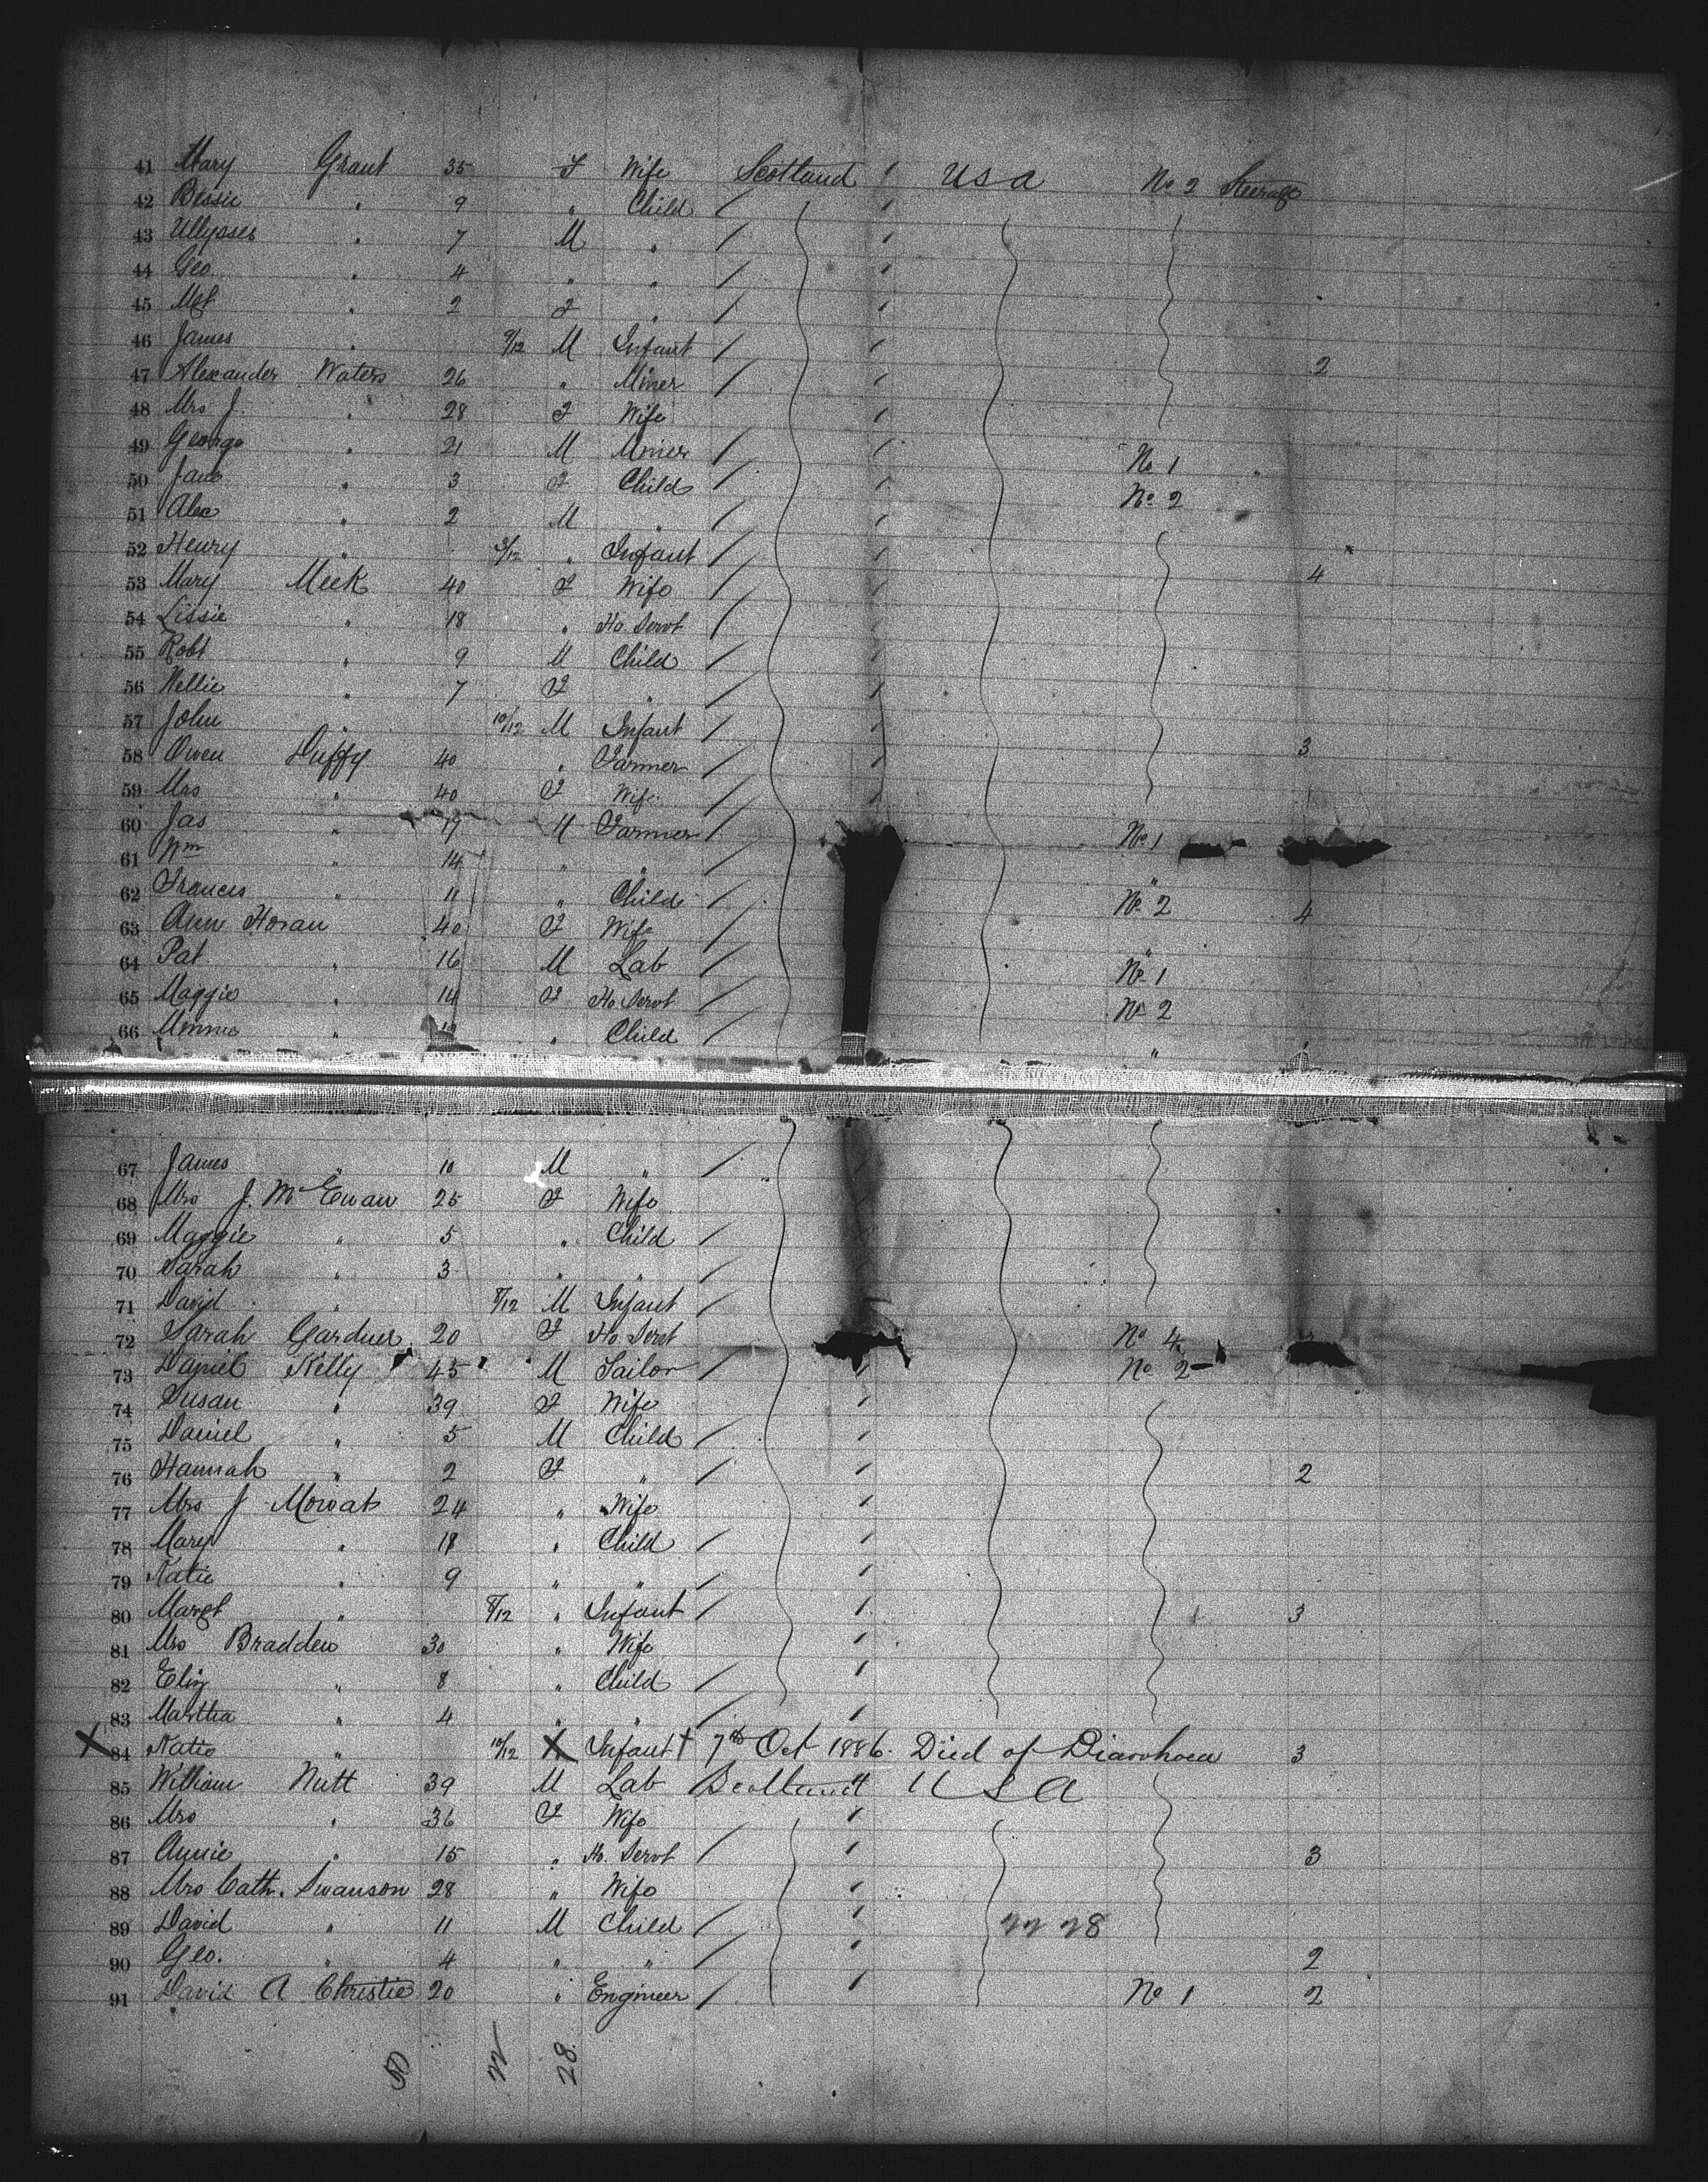 41 Mary Grant 35 F Wife Scotland / USA No 2 Steerage
42 Bessie " 9 " Child / /
43 Ullysses " 7 M " / /
44 Geo. " 4 " " / /
45 Mgt " 2 F " / /
46 James " 9/12 M Infant / /
47 Alexander Waters 26 " Miner / / 2
48 Mrs J. " 28 F Wife /
49 George " 21 M Miner / / No 1 "
50 Jane " 3 F Child / / No 2
51 Alex " 2 M " / /
52 Henry " /12 " Infant / /
53 Mary Meek 40 F Wife / / 4
54 Lissie " 18 " Ho. Servt / /
55 Robt " 9 M Child / /
56 Nellie " 7 F " / /
57 John " 10/12 M Infant / /
58 Owen Duffy 40 " Farmer / / 3
59 Mrs " 40 F Wife /
60 Jas " 17 M Farmer / No 1
61 Wm " 14 " " / "
62 Frances " 11 " Child / No 2 4
63 Ann Horan 40 F Wife / "
64 Pat " 16 M Lab / No 1
65 Maggie " 14 F Ho. Servt / No 2
66 Minnie " " Child / "
67 James " 10 M " /
68 Mrs J. McEwan 25 F Wife
69 Maggie " 5 " Child /
70 Sarah " 3 " " /
71 David " 8/12 M Infant /
72 Sarah Gardner 20 F Ho. Servt No 4
73 Daniel Kelly 45 M Tailor / / No 2
74 Susan " 39 F Wife /
75 Daniel " 5 M Child / /
76 Hannah " 2 F " / / 2
77 Mrs J Mowat 24 " Wife /
78 Mary " " Child / /
79 Katie " 9 " " / /
80 Margt " 8/12 " Infant / / 3
81 Mrs Bradden 30 " Wife /
82 Eliz " 8 " Child / /
83 Martha " 4 " " / /
X 84 Katie " 10/12 X Infant † 7th Oct 1886. Died of Diarrhoea 3
85 William Nutt 39 M Lab Scotland USA
86 Mrs " 36 F Wife /
87 Annie " 15 " Ho. Servt / / 3
88 Mrs Cath. Swanson 28 " Wife /
89 David " 11 M Child / / 22 28
90 Geo. " 4 " " / / 2
91 David A Christie 20 " Engineer / / No 1 2
50 22 28